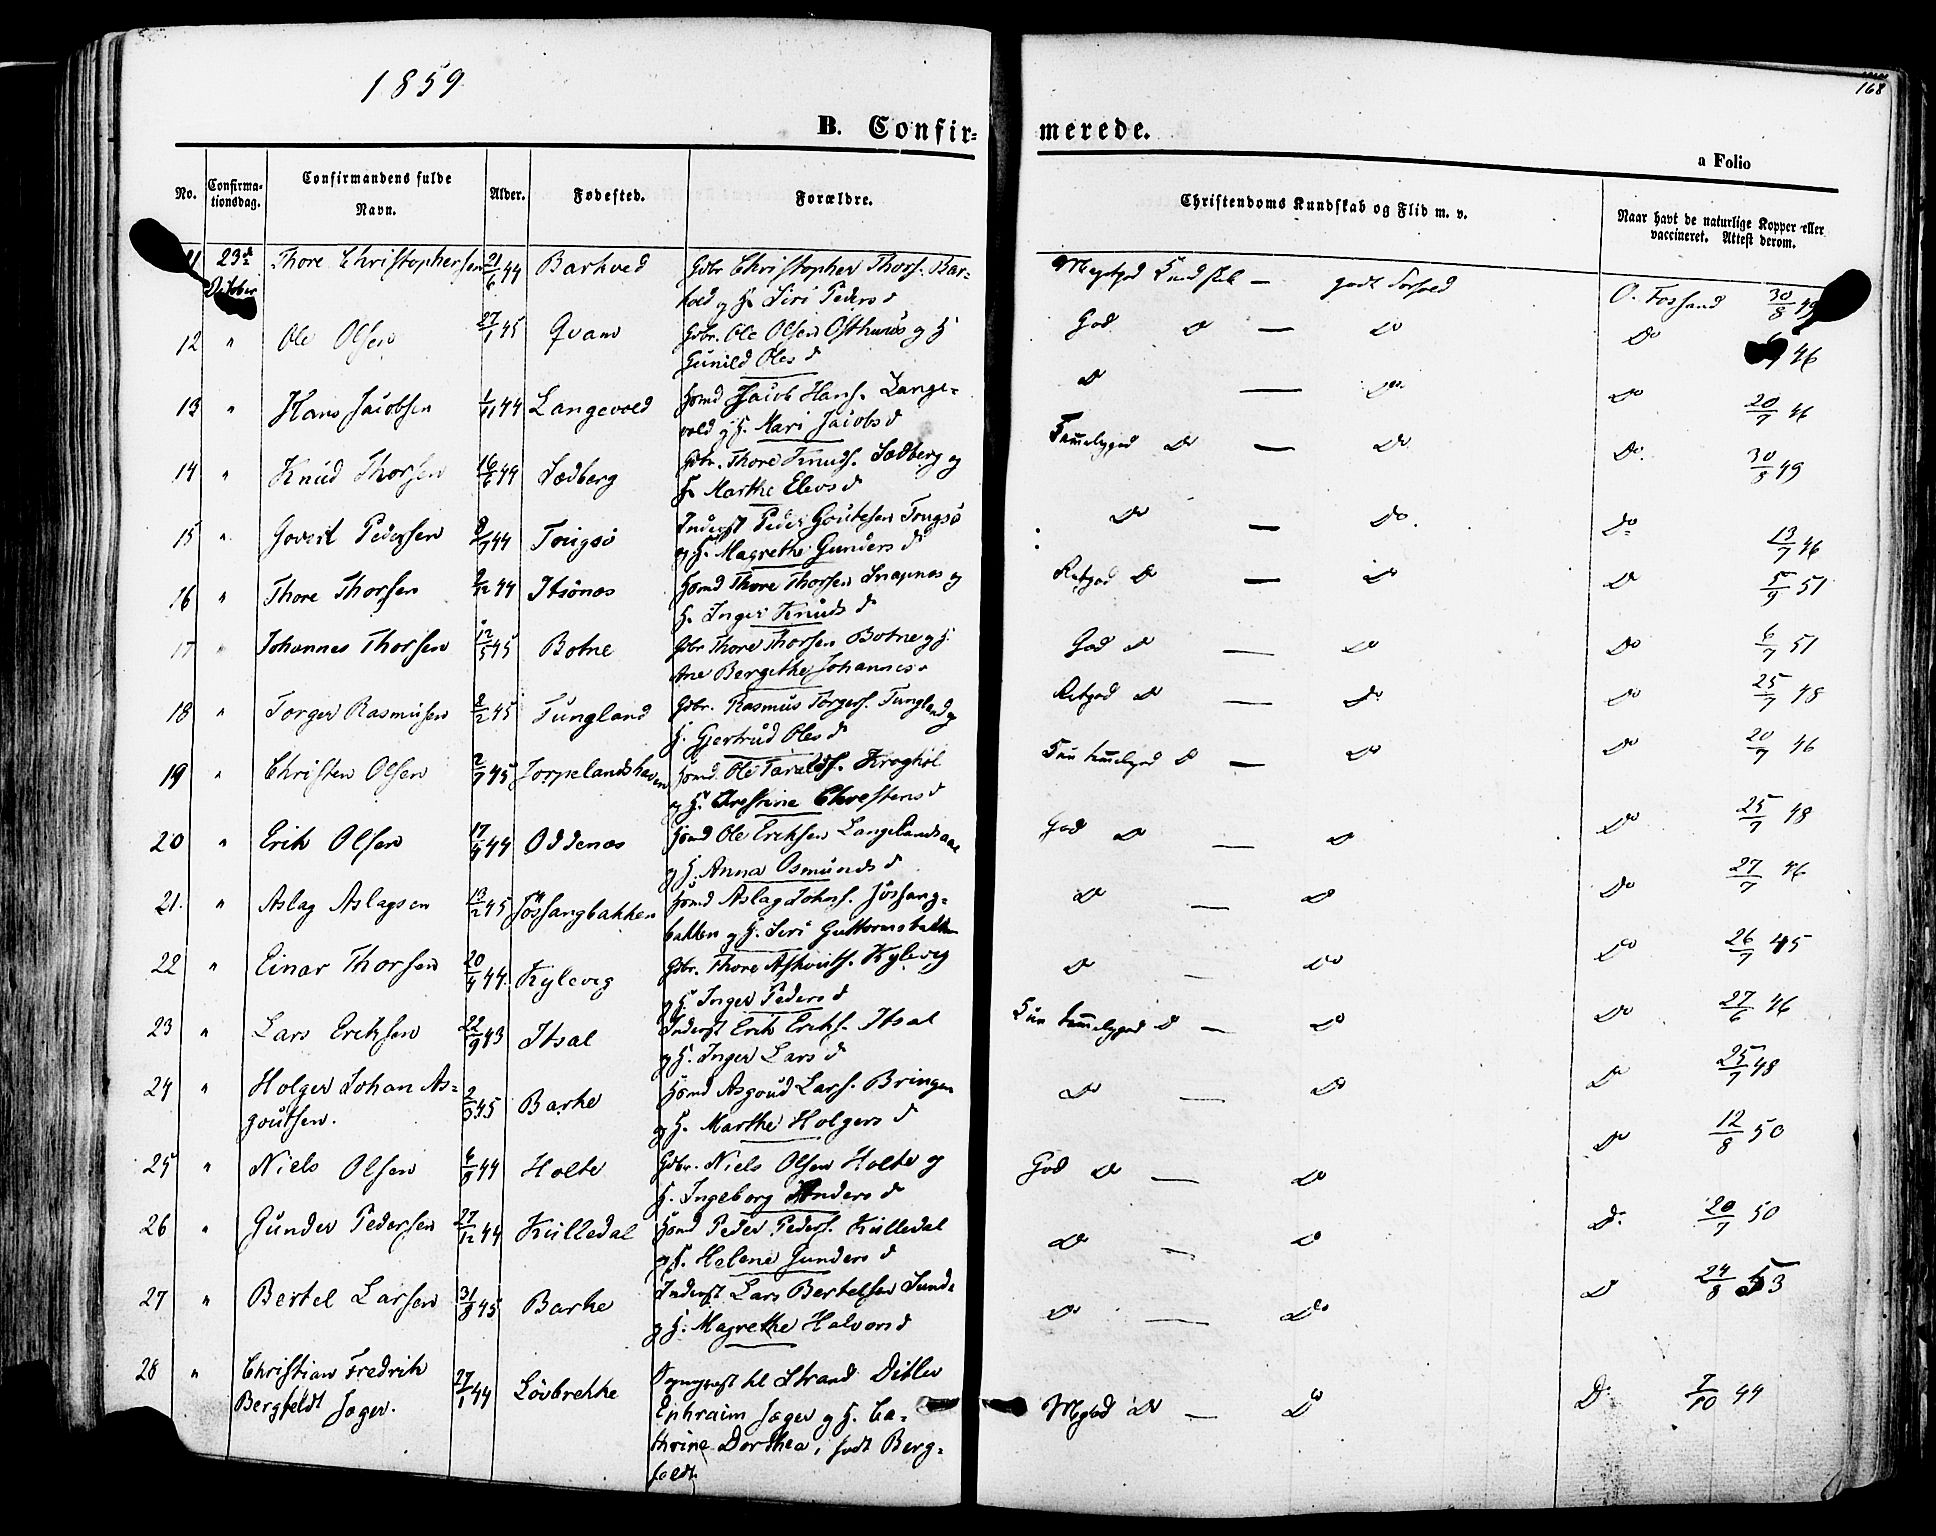 1859
168
B. Confir- merede.
a Folio
No. Confirma-tionsdag. Confirmandens fulde Navn. Alder. Fødested. Forældre. Christendoms Kundskab og Flid m. v. Naar havt de naturlige Kopper eller vaccineret. Attest derom.
11 23d Oktober Thore Christophersen 21/6 44 Barkved Gbr Christopher Thors. Bar-
ked og H. Siri Pedersd Megetgod Kundskab — godt Forhold O. Fossand 30/8 49
12 " Ole Olsen 27/1 45 Qvam Gbr. Ole Olsen Østhuus og H
Gunild Olesd God Do — Do Do 46
13 " Hans Jacobsen 1/11 44 Langevold Hsmd Jacob Hans. Lange-
vold og H. Mari Jacobsd Do — Do Do 20/7 46
14 " Knud Thorsen 16/6 44 Sedberg Gbr. Thore Knuds. Sedberg og
H. Marthe Elevsd Temmeliggod Do — Do Do 30/8 49
15 " Govert Pedersen 44 Tougsø Inderst Peder Goutesen Tougsø
og H. Magrethe Gundersd Do — Do Do 13/7 46
16 " Thore Thorsen 2/12 44 Itsønæs Hsmd Thore Thorsen Snapnes og
H. Inger Knudsd Retgod Do — Do Do 5/9 51
17 " Johannes Thorsen 12/5 45 Botne Gbr Thore Thorsen Botne og H.
Ane Bergithe Johannes God Do — Do Do 6/7 51
18 " Torger Rasmusen 8/2 45 Tungland Gbr. Rasmus Torgers. Tungland og
H. Gjertrud Olesd Retgod Do — Do Do 25/7 48
19 " Christen Olsen 2/7 45 Jørpelandshaven Hsmd. Ole Taralds. Kroghøl
og H. Christine Christensd Kun temmeliggod Do — Do Do 20/7 46
20 " Erik Olsen 17/4 44 Oddenæs Hsmd Ole Eriksen Langelandsaae
og H. Anna Osmundsd God Do — Do Do 25/7 48
21. " Aslag Aslagsen 13/2 45 Jøssangbakken Hsmd Aslag Johs. Jøssang-
bakken og H. Siri Guttormsdatter Do — Do Do 27/7 46
22 " Einar Thorsen 20/4 44. Kylevig Gbr. Thore Askouts. Kylevig
og H Inger Pedersd Do — Do Do 26/7 45
23 " Lars Eriksen 22/9 43 Itsal Inderst Erik Eriks. Itsal
og H. Inger Larsd Kun temmeliggod Do — Do Do 27/6 46
24 " Holger Johan As-
goutsen. 2/3 45 Barke Hsmd Asgoud Lars. Bringen
og H. Marthe Holgersd Do — Do Do 25/7 48
25 " Niels Olsen 6/8 44 Holte Gbr. Niels Olsen Holte og
H. Ingeborg Andersd God Do — Do Do 12/8 50
26 " Gunder Pedersen 27/12 44 Kulledal Hsmd Peder Peders. Kulledal
og H. Helene Gundersd Do — Do Do 20/7 50
27 " Bertel Larsen 31/8 45 Barke Inderst Lars Bertelsen Sunde
og H. Magrethe Halvorsd Do — Do Do 24/8 53
28 " Christian Fredrik
Bergfeldt Jæger. 27/1 44 Løvbrekke Sogneprest til Strand Ditlev
Ephraim Jæger og H. Ca-
thrine Dorthea, født Berg-
feldt Mgod Do — Do Do 7/10 44